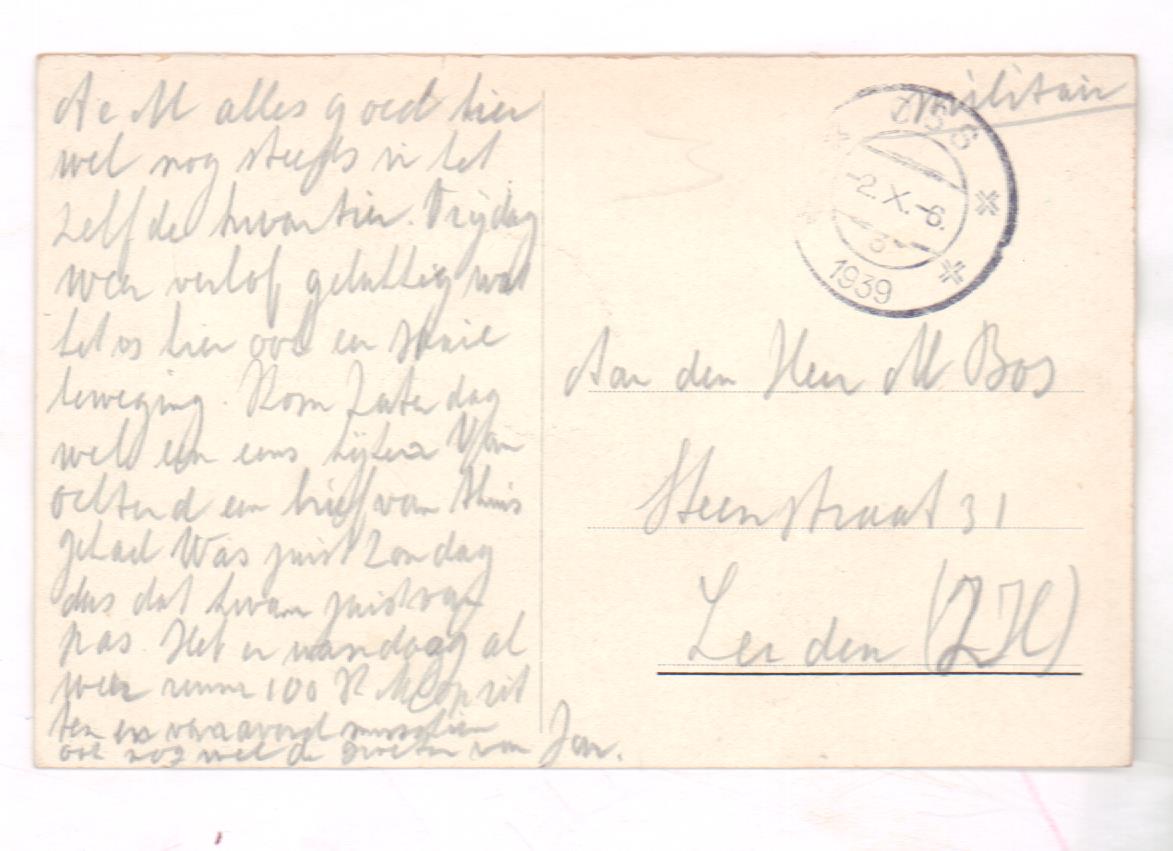 A e M alles goed hier
wel nog steeds in het
zelfde kwartier. Vrijdag
weer verlof gelukkig want
het is hier ook een
beweging. Kom Zaterdag
wel een eens kijken Van
ochtend een brief van thuis
gehad Was juist Zondag
dus dat kwam juist van
pas. Heb er vandaag al
weer ruim 100 K M op zit
ten en vanavond misschien
ook nog wel de groeten van Jan.
Militair
OSS
-2.X.-6.
1939
Aan den Heer M Bos
Steenstraat 31
Leiden (ZH)